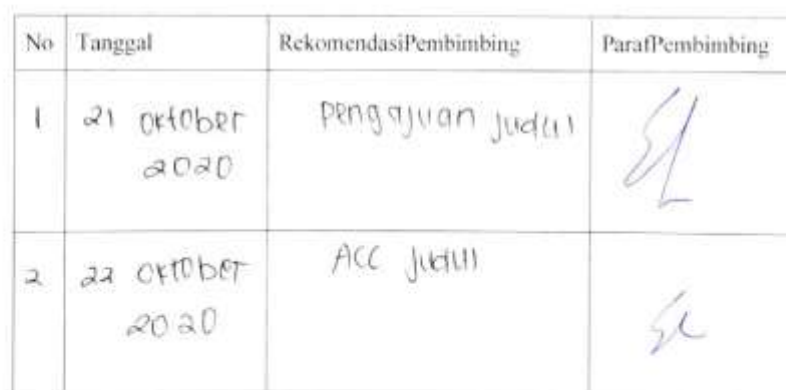 No Tanggal RekomendasiPembimbing ParafPembimbing
1 21 oktober pengajuan judul
2020
2 22 oktober ACC judul
2020